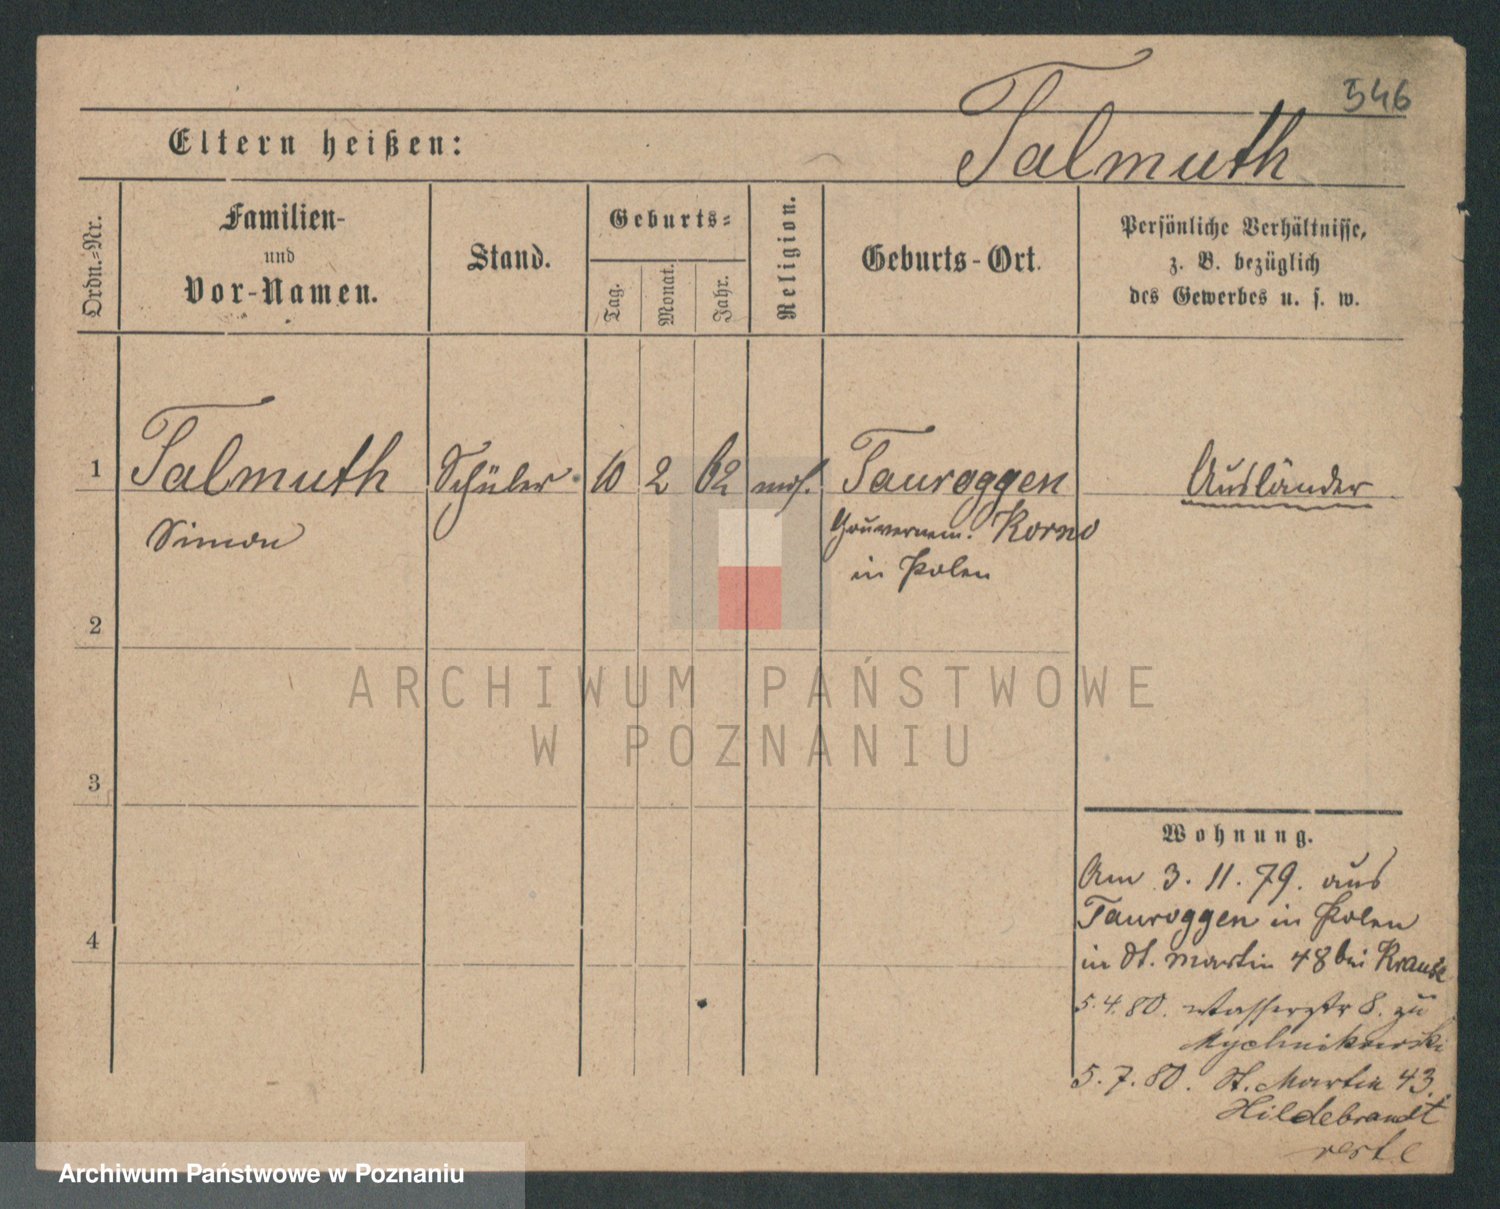 546
Talmuth
Eltern heißen:
Ordn.-Nr.
Familien-
und
Vor-Namen.
Stand.
Geburts=
Tag.
Monat.
Jahr.
Religion.
Geburts-Ort.
Persönliche Verhältnisse,
z. B. bezüglich
des Gewerbes u. s. w.
1 Talmuth Schüler 10 2 62 mos. Tauroggen Ausländer
Simon Gouvernem. Korno
in Polen
2
3
4
Wohnung.
Am 3. 11. 79. aus
Tauroggen in Polen
in St. Martin 48 bei Krause
5. 4. 80. Wasserstr 8. zu
Mychnikowski
5. 7. 80. St. Martin 43.
Hildebrandt
ARCHIWUM PAŃSTWOWE
W POZNANIU
Archiwum Państwowe w Poznaniu